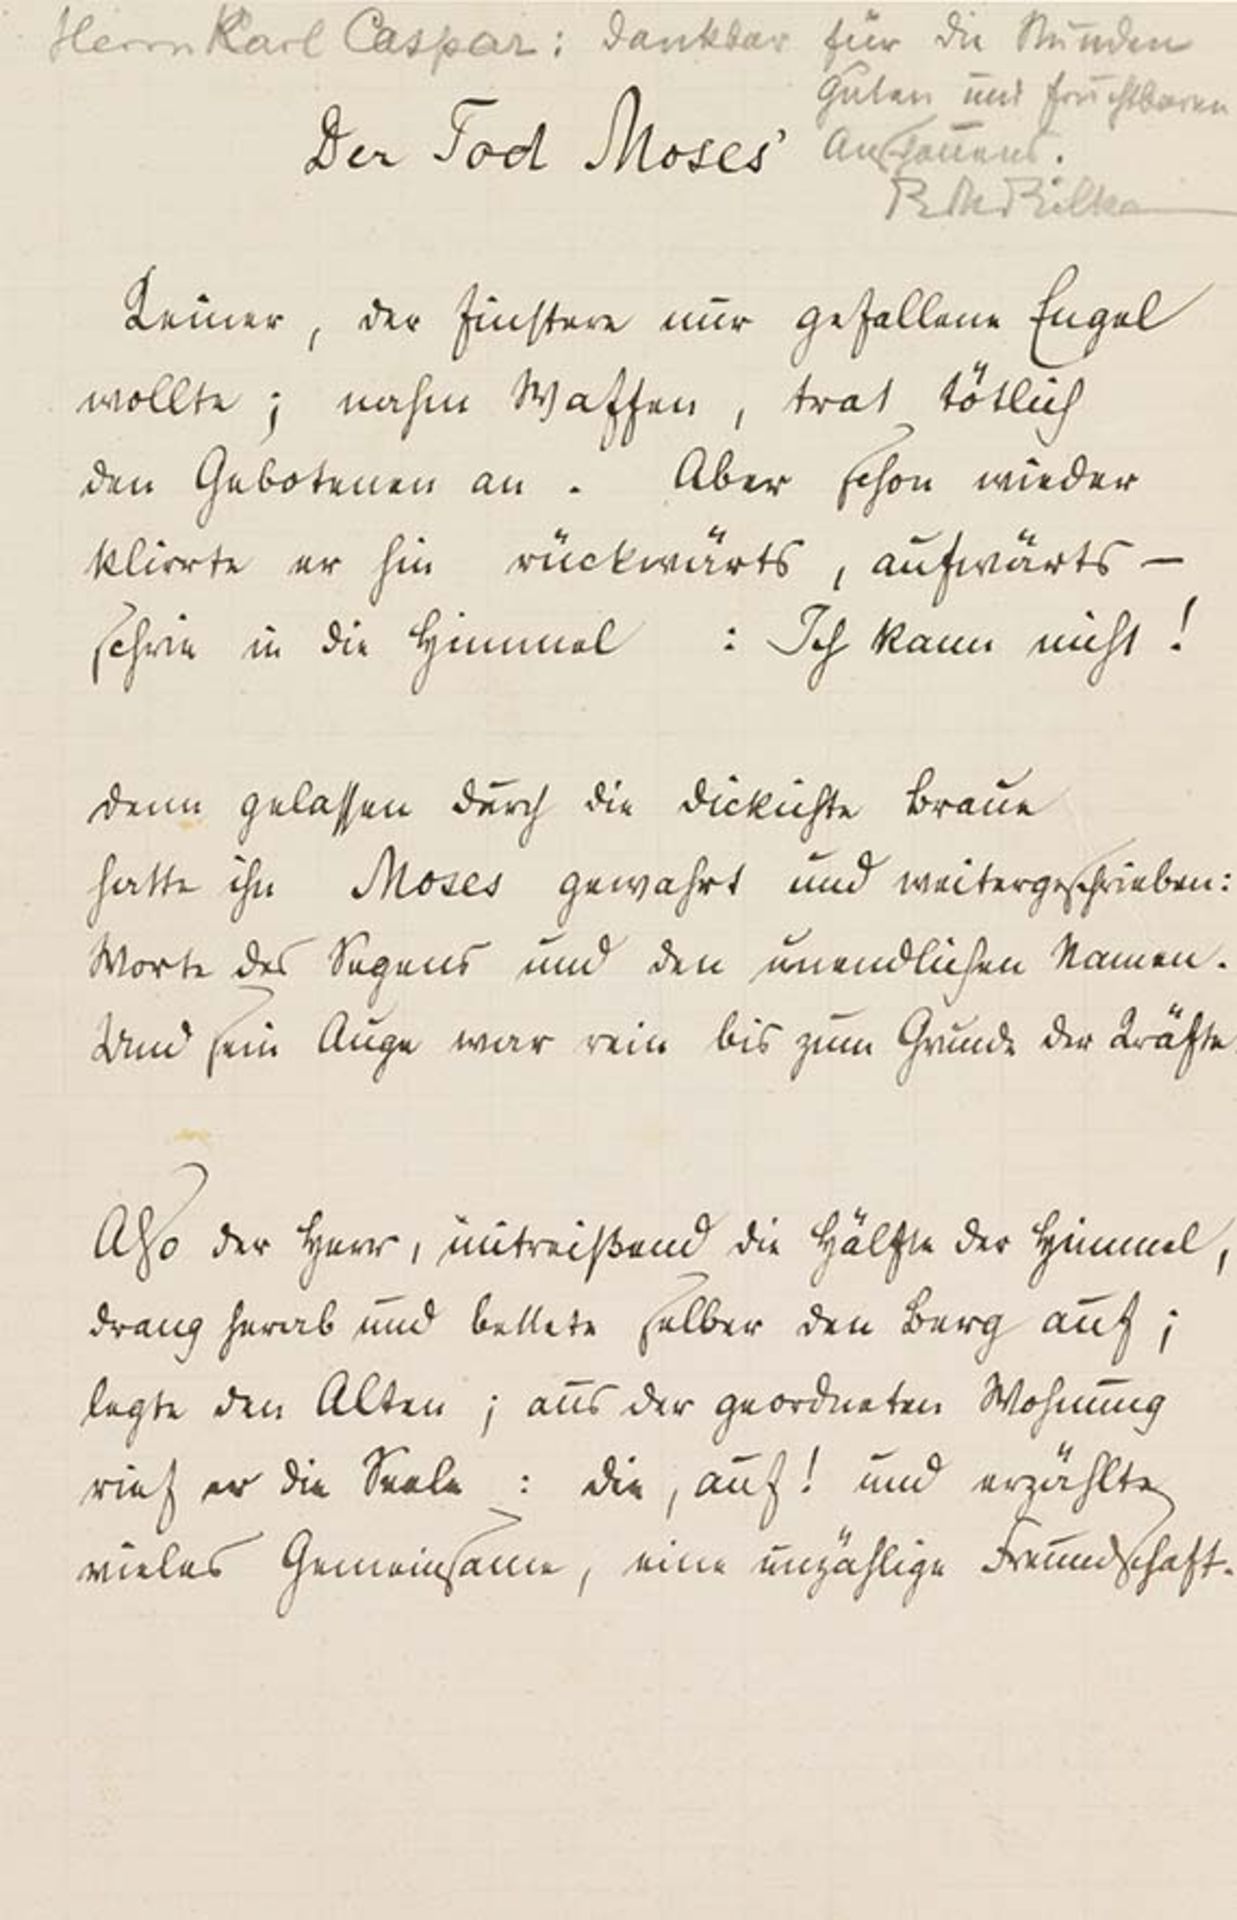 Herrn Karl Caspar: dankbar für die Stunden
guten und fruchtbaren
Anschauens.
RMRilke
Der Tod Moses'
Keiner, der finstere nur gefallene Engel
wollte; nahm Waffen, trat tötlich
den Gebotenen an. Aber schon wieder
klirrte er hin rückwärts, aufwärts –
schrie in die Himmel : Ich kann nicht!
denn gelassen durch die dickichte Braue
hatte ihn Moses gewahrt und weitergeschrieben:
Worte des Segens und den unendlichen Namen.
Und sein Auge war rein bis zum Grunde der Kräfte.
Also der Herr, mitreißend die Hälfte der Himmel,
drang herab und bettete selber den Berg auf;
legte den Alten; aus der geordneten Wohnung
rief er die Seele : die, auf! und erzählte
vieles Gemeinsame, eine unzählige Freundschaft.